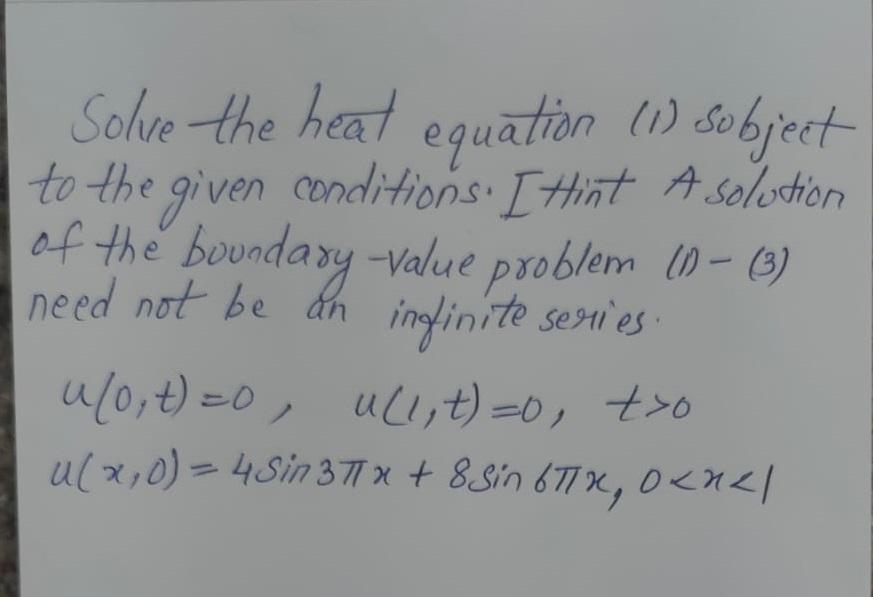 Solve the heat equation (1) sobject
to the given conditions. [Hint A solution
of the boundary-value problem (1) - (3)
need not be an infinite series.
u(0,t)=0, u(1,t)=0, t>0
u(x,0) = 4 sin 3πx + 8 sin 6πx, 0<x<1